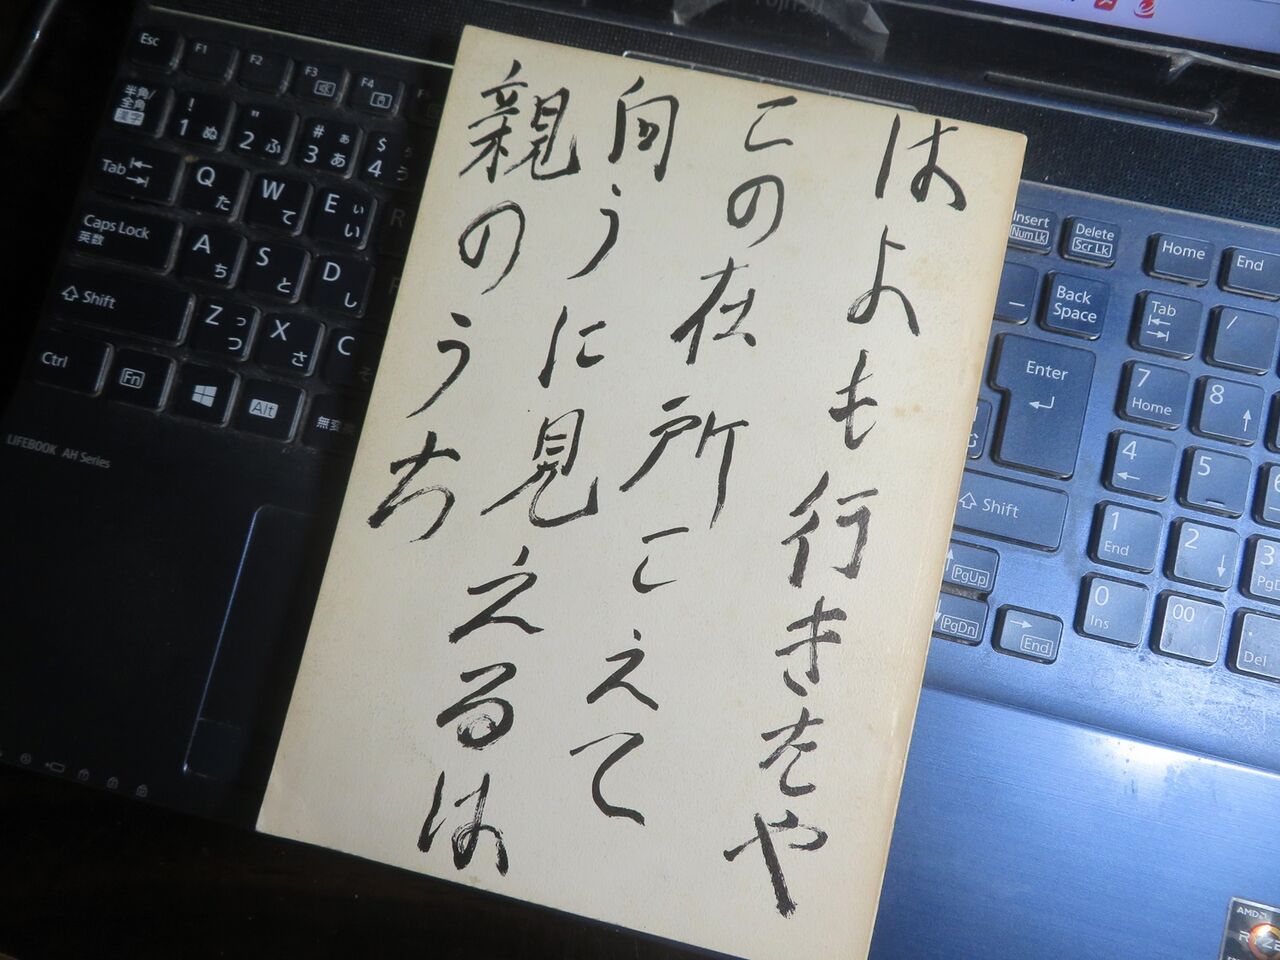 はよも行きたや
この在所こえて
向うに見えるは
親のうち
Esc
F1
F2
F3
F4
半角/
全角
漢字
! 1 ぬ
" 2 ふ
# 3 ぁ あ
$ 4
Tab
Q た
W て
E ぃ い
Caps Lock
英数
A ち
S と
D し
Shift
Z っ つ
X さ
C
Ctrl
Fn
Alt
LIFEBOOK AH Series
Insert
Num Lk
Delete
Scr Lk
Home
End
Back
Space
Tab
/
Enter
7
Home
8
4
5
Shift
1
End
2
3
PgUp
PgDn
End
0
Ins
00
.
Del
AMD